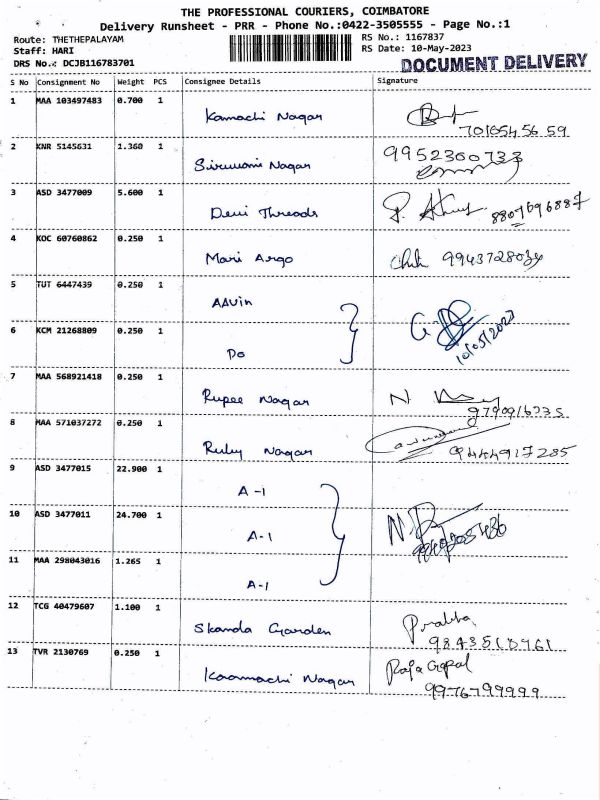 THE PROFESSIONAL COURIERS, COIMBATORE
Delivery Runsheet - PRR - Phone No.:0422-3505555 - Page No.:1
Route: THETHEPALAYAM RS No.: 1167837
Staff: HARI RS Date: 10-May-2023
DRS No.: DCJB116783701 DOCUMENT DELIVERY
S No Consignment No Weight PCS Consignee Details Signature
1 MAA 103497483 0.700 1 Kamachi Nagar
2 KNR 5145631 1.360 1 Siruvani Nagar 9952300733
3 ASD 3477009 5.600 1 Devi Threads
4 KOC 60760862 0.250 1 Mari Argo 9943728034
5 TUT 6447439 0.250 1 AAVin
6 KCM 21268809 0.250 1 Do 10/05/2023
7 MAA 568921418 0.250 1 Rupee Nagar
8 MAA 571037272 0.250 1 Ruby Nagar 9444917285
9 ASD 3477015 22.900 1 A-1
10 ASD 3477011 24.700 1 A-1
11 MAA 298043016 1.265 1 A-1
12 TCG 40479607 1.100 1 Skanda Garden Prabha
13 TVR 2130769 0.250 1 Kaamachi Nagar Raja Gopal
9976799999